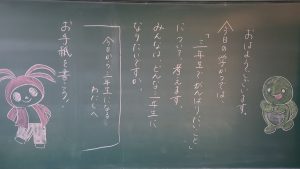 おはようございます。
今日の学かつでは
「二年生でがんばりたいこと」
について考えます。
みんなは、どんな二年生に
なりたいですか。
今日から二年生になる
わたしへ
お手紙を書こう!